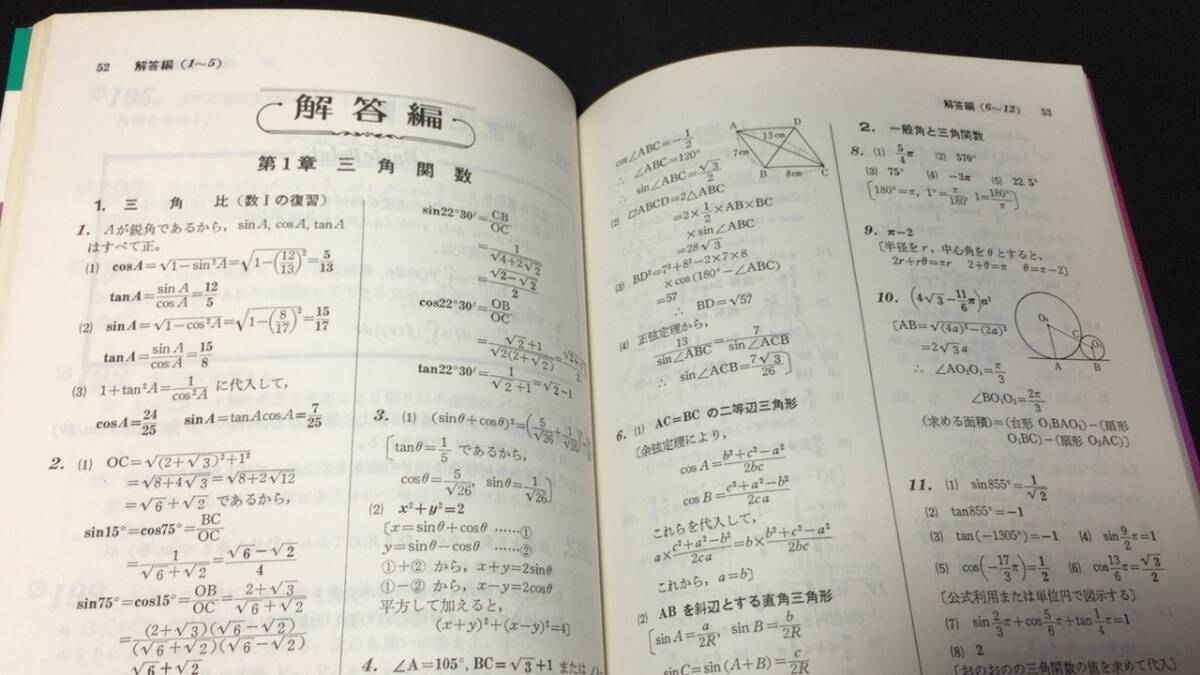 52 解答編 (1〜5)
解答編
第1章 三角関数
1. 三角比 (数Iの復習)
1. Aが鋭角であるから, sinA, cosA, tanA
はすべて正。
(1) cosA=√(1−sin²A)=√(1−(12/13)²)=5/13
tanA=sinA/cosA=12/5
(2) sinA=√(1−cos²A)=√(1−(8/17)²)=15/17
tanA=sinA/cosA=15/8
(3) 1+tan²A=1/cos²A に代入して,
cosA=24/25 sinA=tanAcosA=7/25
2. (1) OC=√((2+√3)²+1²)
=√(8+4√3)=√(8+2√12)
=√6+√2 であるから,
sin15°=cos75°=BC/OC
=1/(√6+√2)=(√6−√2)/4
sin75°=cos15°=OB/OC=(2+√3)/(√6+√2)
=(2+√3)(√6−√2)/(√6+√2)(√6−√2)
√6+√2
sin22°30′=CB/OC
=1/√(4+2√2)
=√(2−√2)/2
cos22°30′=OB/OC
tan22°30′=1/(√2+1)=√2−1
3. (1) (sinθ+cosθ)²=(5/√26+1/√26)
[tanθ=1/5 であるから,
cosθ=5/√26, sinθ=1/√26]
(2) x²+y²=2
[x=sinθ+cosθ ……①
y=sinθ−cosθ ……②
①+② から, x+y=2sinθ
①−② から, x−y=2cosθ
平方して加えると,
(x+y)²+(x−y)²=4]
4. ∠A=105°, BC=√3+1 または
解答編 (6〜12) 53
cos∠ABC=−1/2
∠ABC=120°
∴ sin∠ABC=√3/2
A
D
13cm
7cm
B
8cm
C
(2) □ABCD=2△ABC
=2×1/2×AB×BC
×sin∠ABC
=28√3
(3) BD²=7²+8²−2×7×8
×cos(180°−∠ABC)
=57
∴ BD=√57
(4) 正弦定理から,
13/sin∠ABC=7/sin∠ACB
∴ sin∠ACB=7√3/26]
6. (1) AC=BC の二等辺三角形
[余弦定理により,
cosA=(b²+c²−a²)/2bc
cosB=(c²+a²−b²)/2ca
これらを代入して,
a×(c²+a²−b²)/2ca=b×(b²+c²−a²)/2bc
これから, a=b]
(2) ABを斜辺とする直角三角形
[sinA=a/2R, sinB=b/2R
sinC=sin(A+B)=c/2R
2. 一般角と三角関数
8. (1) 5/4π (2) 570°
(3) 75° (4) −3π (5) 22.5°
[180°=π, 1°=π/180, 1=180°/π]
9. π−2
[半径をr, 中心角をθとすると,
2r+rθ=πr 2+θ=π θ=π−2]
10. (4√3−11/6π)a²
[AB=√((4a)²−(2a)²)
=2√3a
∴ ∠AO₂O₁=π/3
∠BO₁O₂=2π/3
O₂
C
O₁
A
B
(求める面積)=(台形 O₁BAO₂)−(扇形
O₁BC)−(扇形 O₂AC)]
11. (1) sin855°=1/√2
(2) tan855°=−1
(3) tan(−1305°)=−1 (4) sin9/2π=1
(5) cos(−17/3π)=1/2 (6) cos13/6π=√3/2
[公式利用または単位円で図示する]
(7) sin2/3π+cos5/6π+tan1/4π=1
(8) 2
[おのおのの三角関数の値を求めて代入]